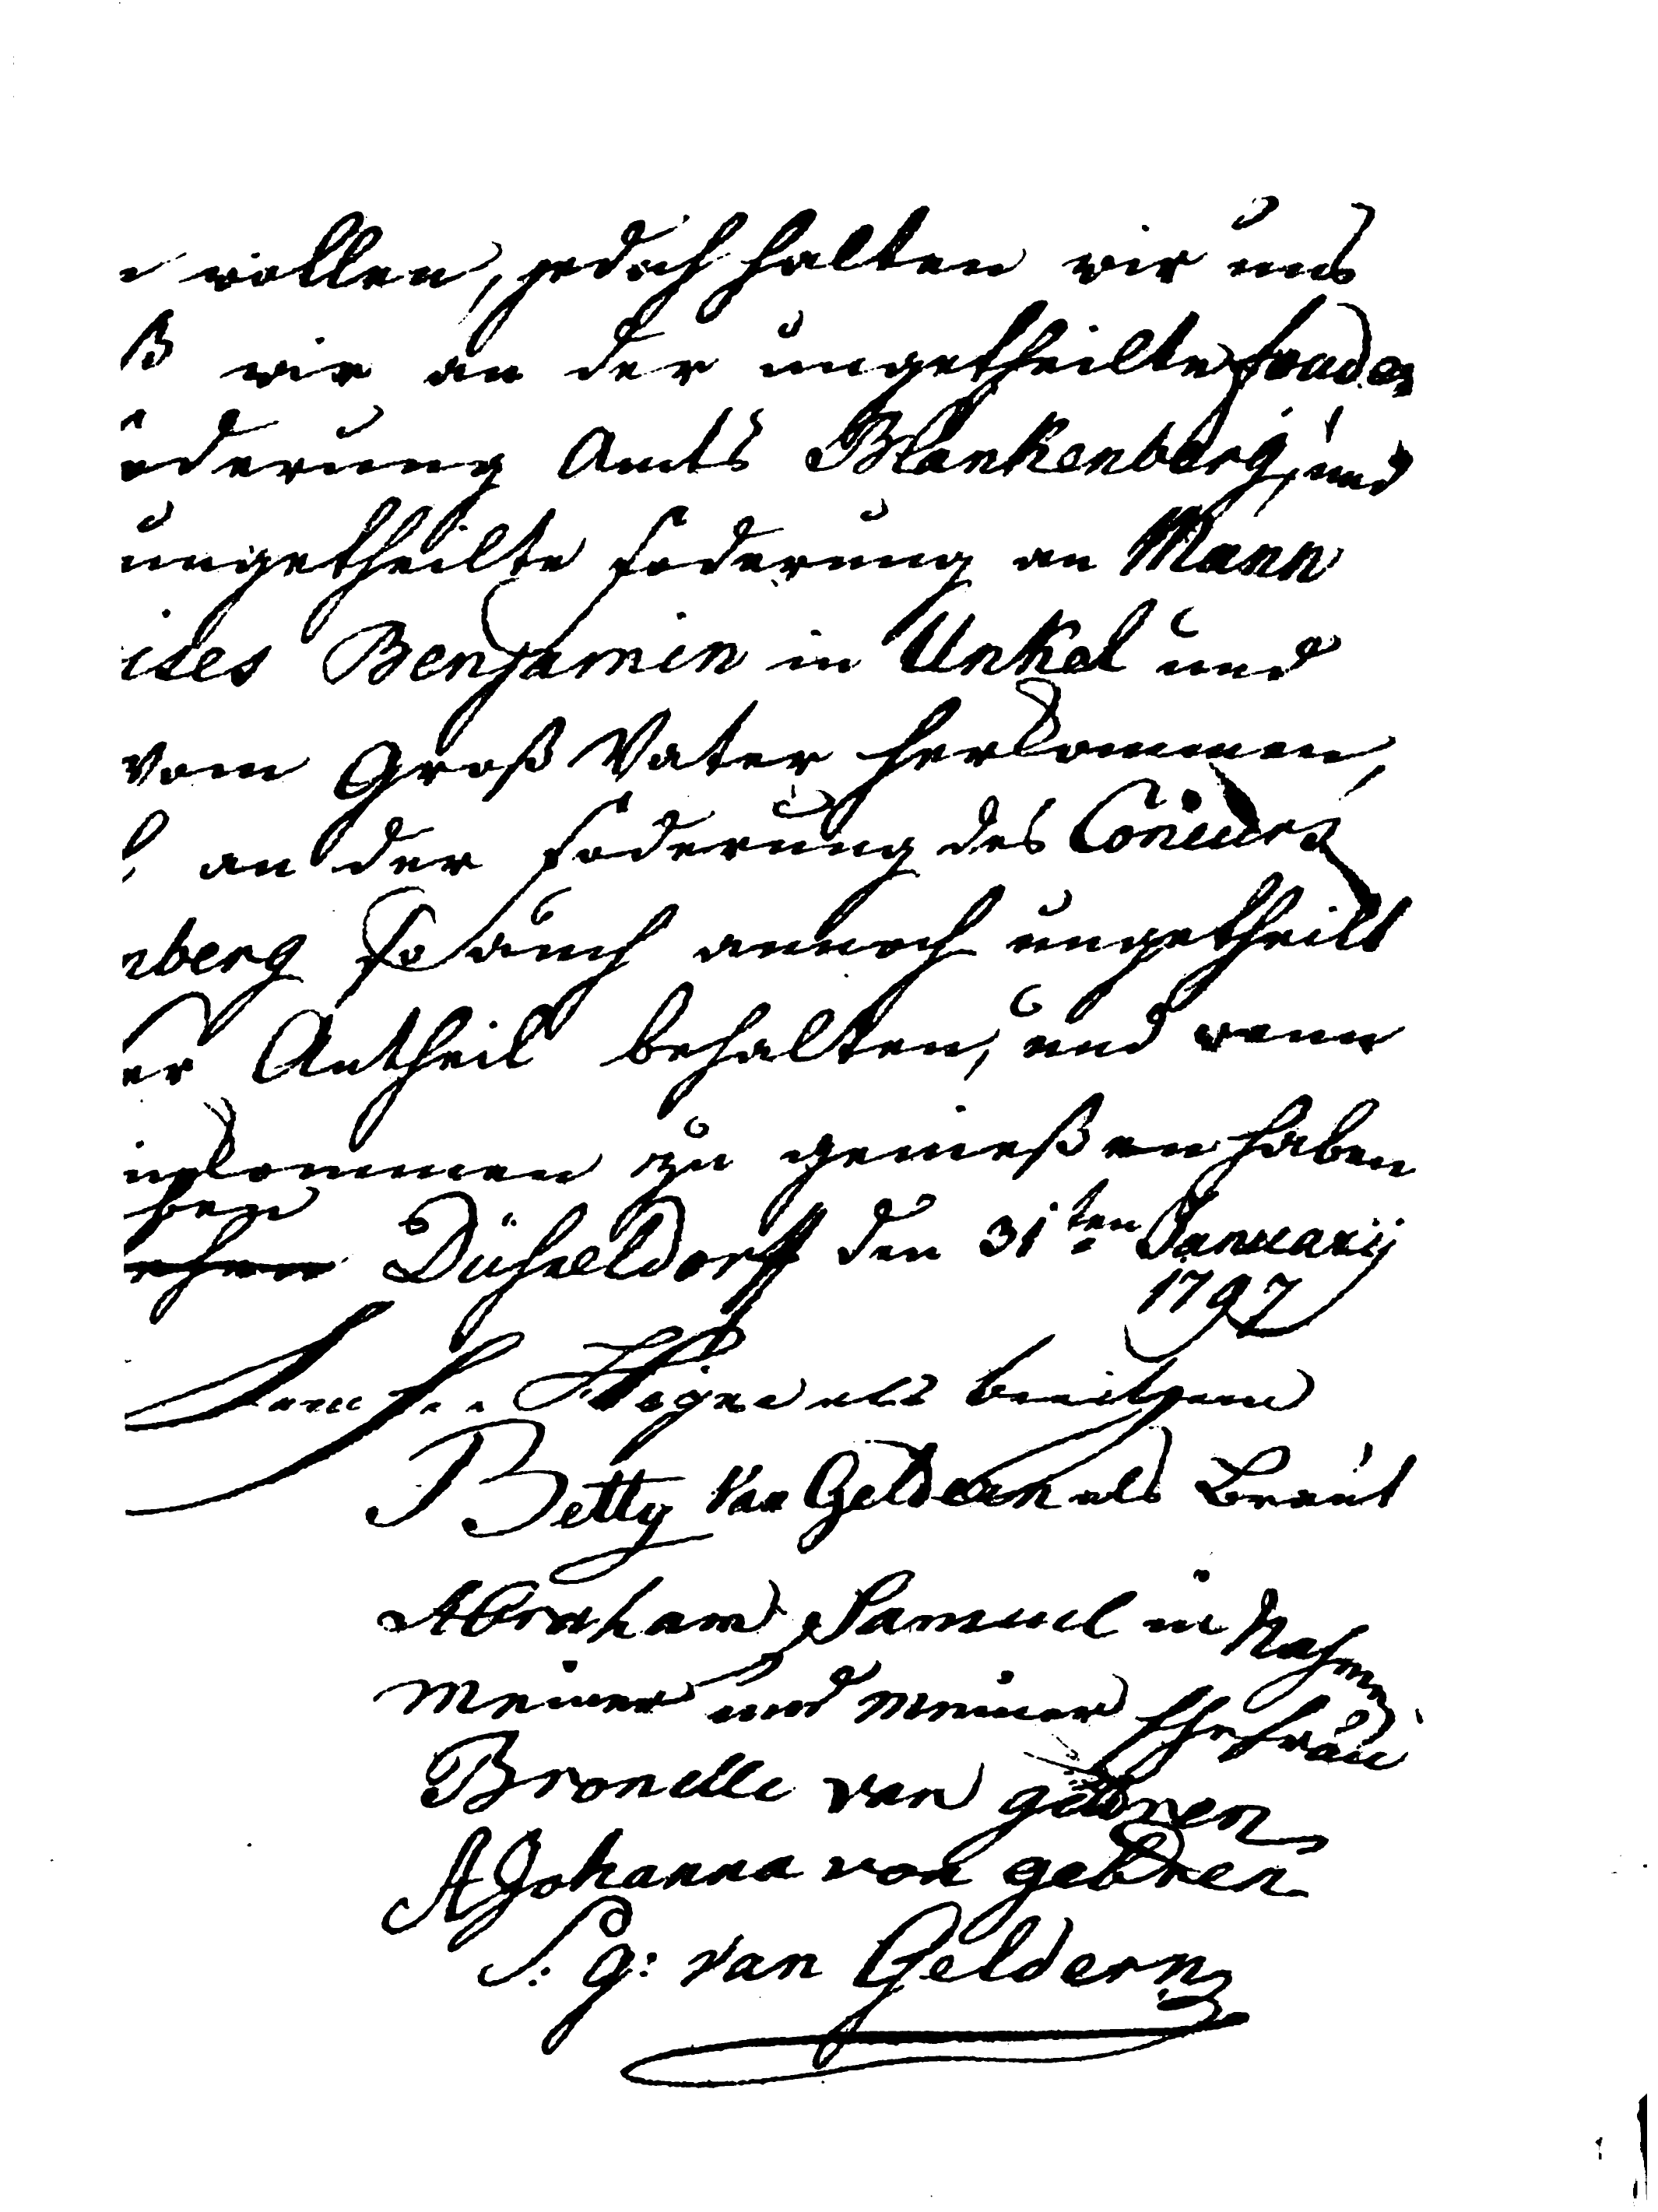 wollen, jedoch halten wir uns
ß wir an der ungetheilte
derung Amts Blankenberg, und
ungetheilte foderung an Mann
ises Benjamin in Unkel und
vom Groß Vater herkommen,
an der foderung des Concurs
nberg so auch annoch ungetheilt
er Antheil behalten, und wenn
inkommen zu genießen haben
ben
Düßseldorff den 31ten Januarij
1797
als
Betty Van Geldern als Braut
Abraham Samuel in Nahmen
meiner und meiner Ehefrau
Bronelle van geldren
A Johanna von geldren
S: g: van Geldern